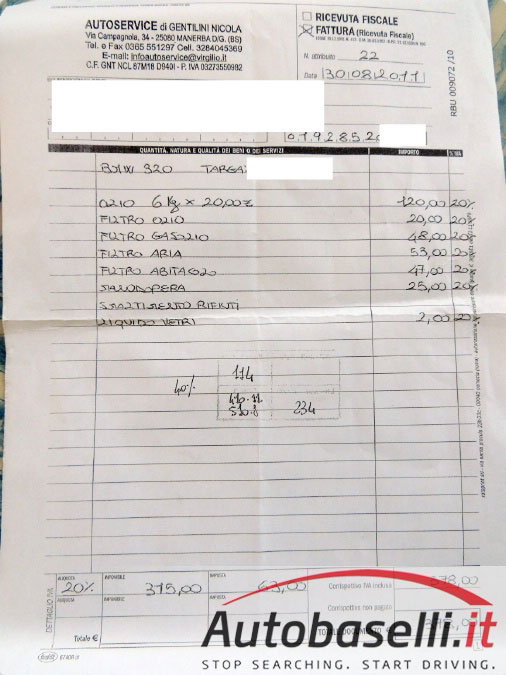 AUTOSERVICE di GENTILINI NICOLA
Via Campagnole, 34 - 25080 MANERBA D/G. (BS)
Tel. e Fax 0365 551297 Cell. 3284045369
E-mail: infoautoservice@virgilio.it
C.F. GNT NCL 87M18 D940I - P. IVA 03273550982
RICEVUTA FISCALE
FATTURA (Ricevuta Fiscale)
N. attribuito 22
Data 30/08/2011
RBU 009072 /10
0.1.9.2.8.5.2
QUANTITÀ, NATURA E QUALITÀ DEI BENI O DEI SERVIZI IMPORTO % IVA
BMW 320 TARGA
OLIO 6 Kg x 20,00 120,00 20%
FILTRO OLIO 20,00 20%
FILTRO GASOLIO 48,00 20%
FILTRO ARIA 53,00 20%
FILTRO ABITACOLO 47,00 20%
MANODOPERA 25,00 20%
SMALTIMENTO RIFIUTI
LIQUIDO VETRI 2,00 20%
40%
174
510.1
234
DETTAGLIO IVA
ALIQUOTA IMPONIBILE IMPOSTA
20% 315,00 63,00
ALIQUOTA IMPONIBILE IMPOSTA
Totale €
Corrispettivo IVA inclusa 378,00
Corrispettivo non pagato
Autobaselli.it
STOP SEARCHING. START DRIVING.